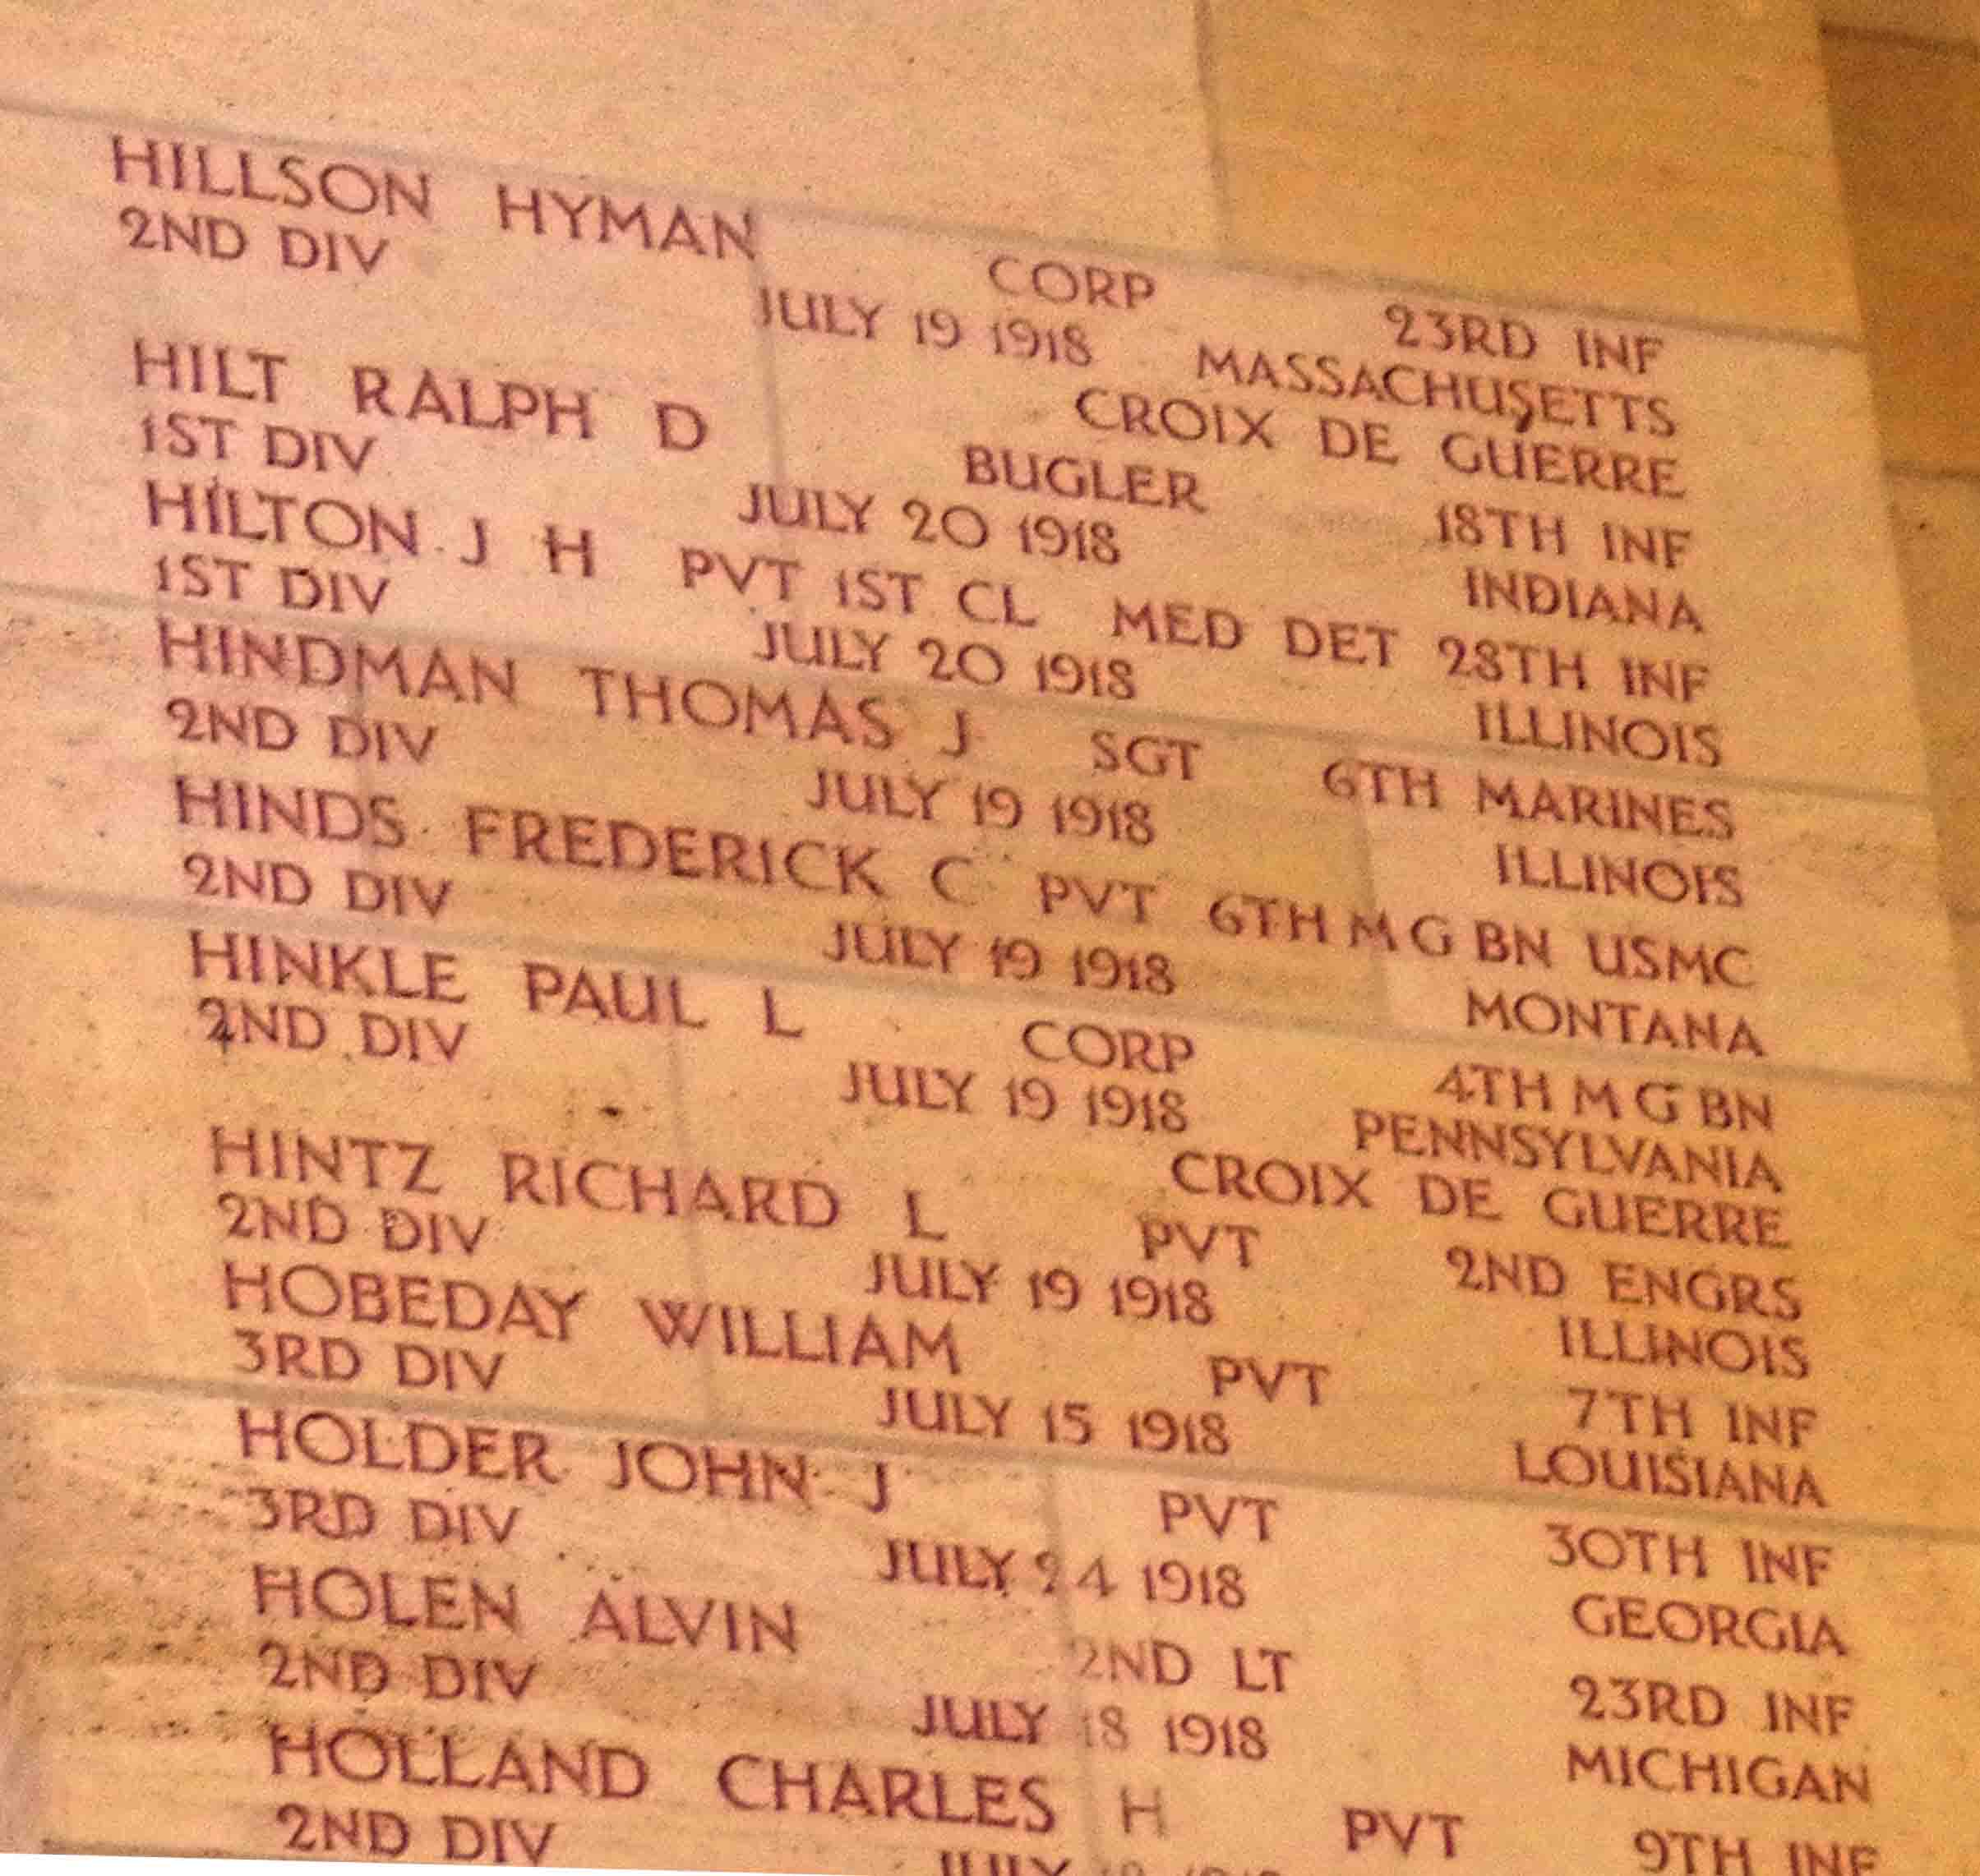 HILLSON HYMAN CORP 23RD INF
2ND DIV JULY 19 1918 MASSACHUSETTS
CROIX DE GUERRE
HILT RALPH D BUGLER 18TH INF
1ST DIV JULY 20 1918 INDIANA
HILTON J H PVT 1ST CL MED DET 28TH INF
1ST DIV JULY 20 1918 ILLINOIS
HINDMAN THOMAS J SGT 6TH MARINES
2ND DIV JULY 19 1918 ILLINOIS
HINDS FREDERICK C PVT 6TH M G BN USMC
2ND DIV JULY 19 1918 MONTANA
HINKLE PAUL L CORP 4TH M G BN
2ND DIV JULY 19 1918 PENNSYLVANIA
CROIX DE GUERRE
HINTZ RICHARD L PVT 2ND ENGRS
2ND DIV JULY 19 1918 ILLINOIS
HOBEDAY WILLIAM PVT 7TH INF
3RD DIV JULY 15 1918 LOUISIANA
HOLDER JOHN J PVT 30TH INF
3RD DIV JULY 24 1918 GEORGIA
HOLEN ALVIN 2ND LT 23RD INF
2ND DIV JULY 18 1918 MICHIGAN
HOLLAND CHARLES H PVT 9TH INF
2ND DIV JULY